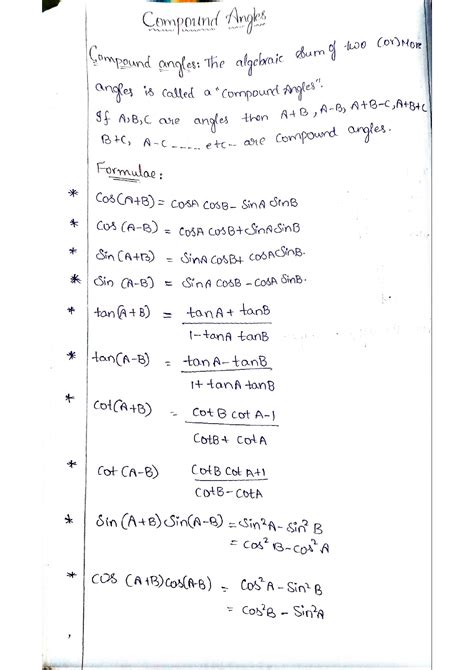 Compound Angles
Compound angles: The algebraic sum of two (or) More
angles is called a "Compound Angles".
If A,B,C are angles then A+B, A-B, A+B-C, A+B+C
B+C, A-C ...... etc-- are compound angles.
Formulae:
* Cos(A+B) = CosA CosB - SinA SinB
* Cos (A-B) = CosA CosB + SinA SinB
* Sin(A+B) = SinA CosB + CosA SinB.
* Sin (A-B) = SinA CosB - CosA SinB.
* tan(A+B) = tanA + tanB
1 - tanA tanB
* tan(A-B) = tanA - tanB
1 + tanA tanB
* Cot(A+B) = Cot B cot A - 1
CotB + Cot A
* Cot (A-B) CotB Cot A+1
CotB - CotA
* Sin (A+B) Sin(A-B) = Sin²A - Sin² B
= Cos² B - Cos² A
* COS (A+B) cos(A-B) = Cos²A - Sin² B
= Cos²B - Sin²A